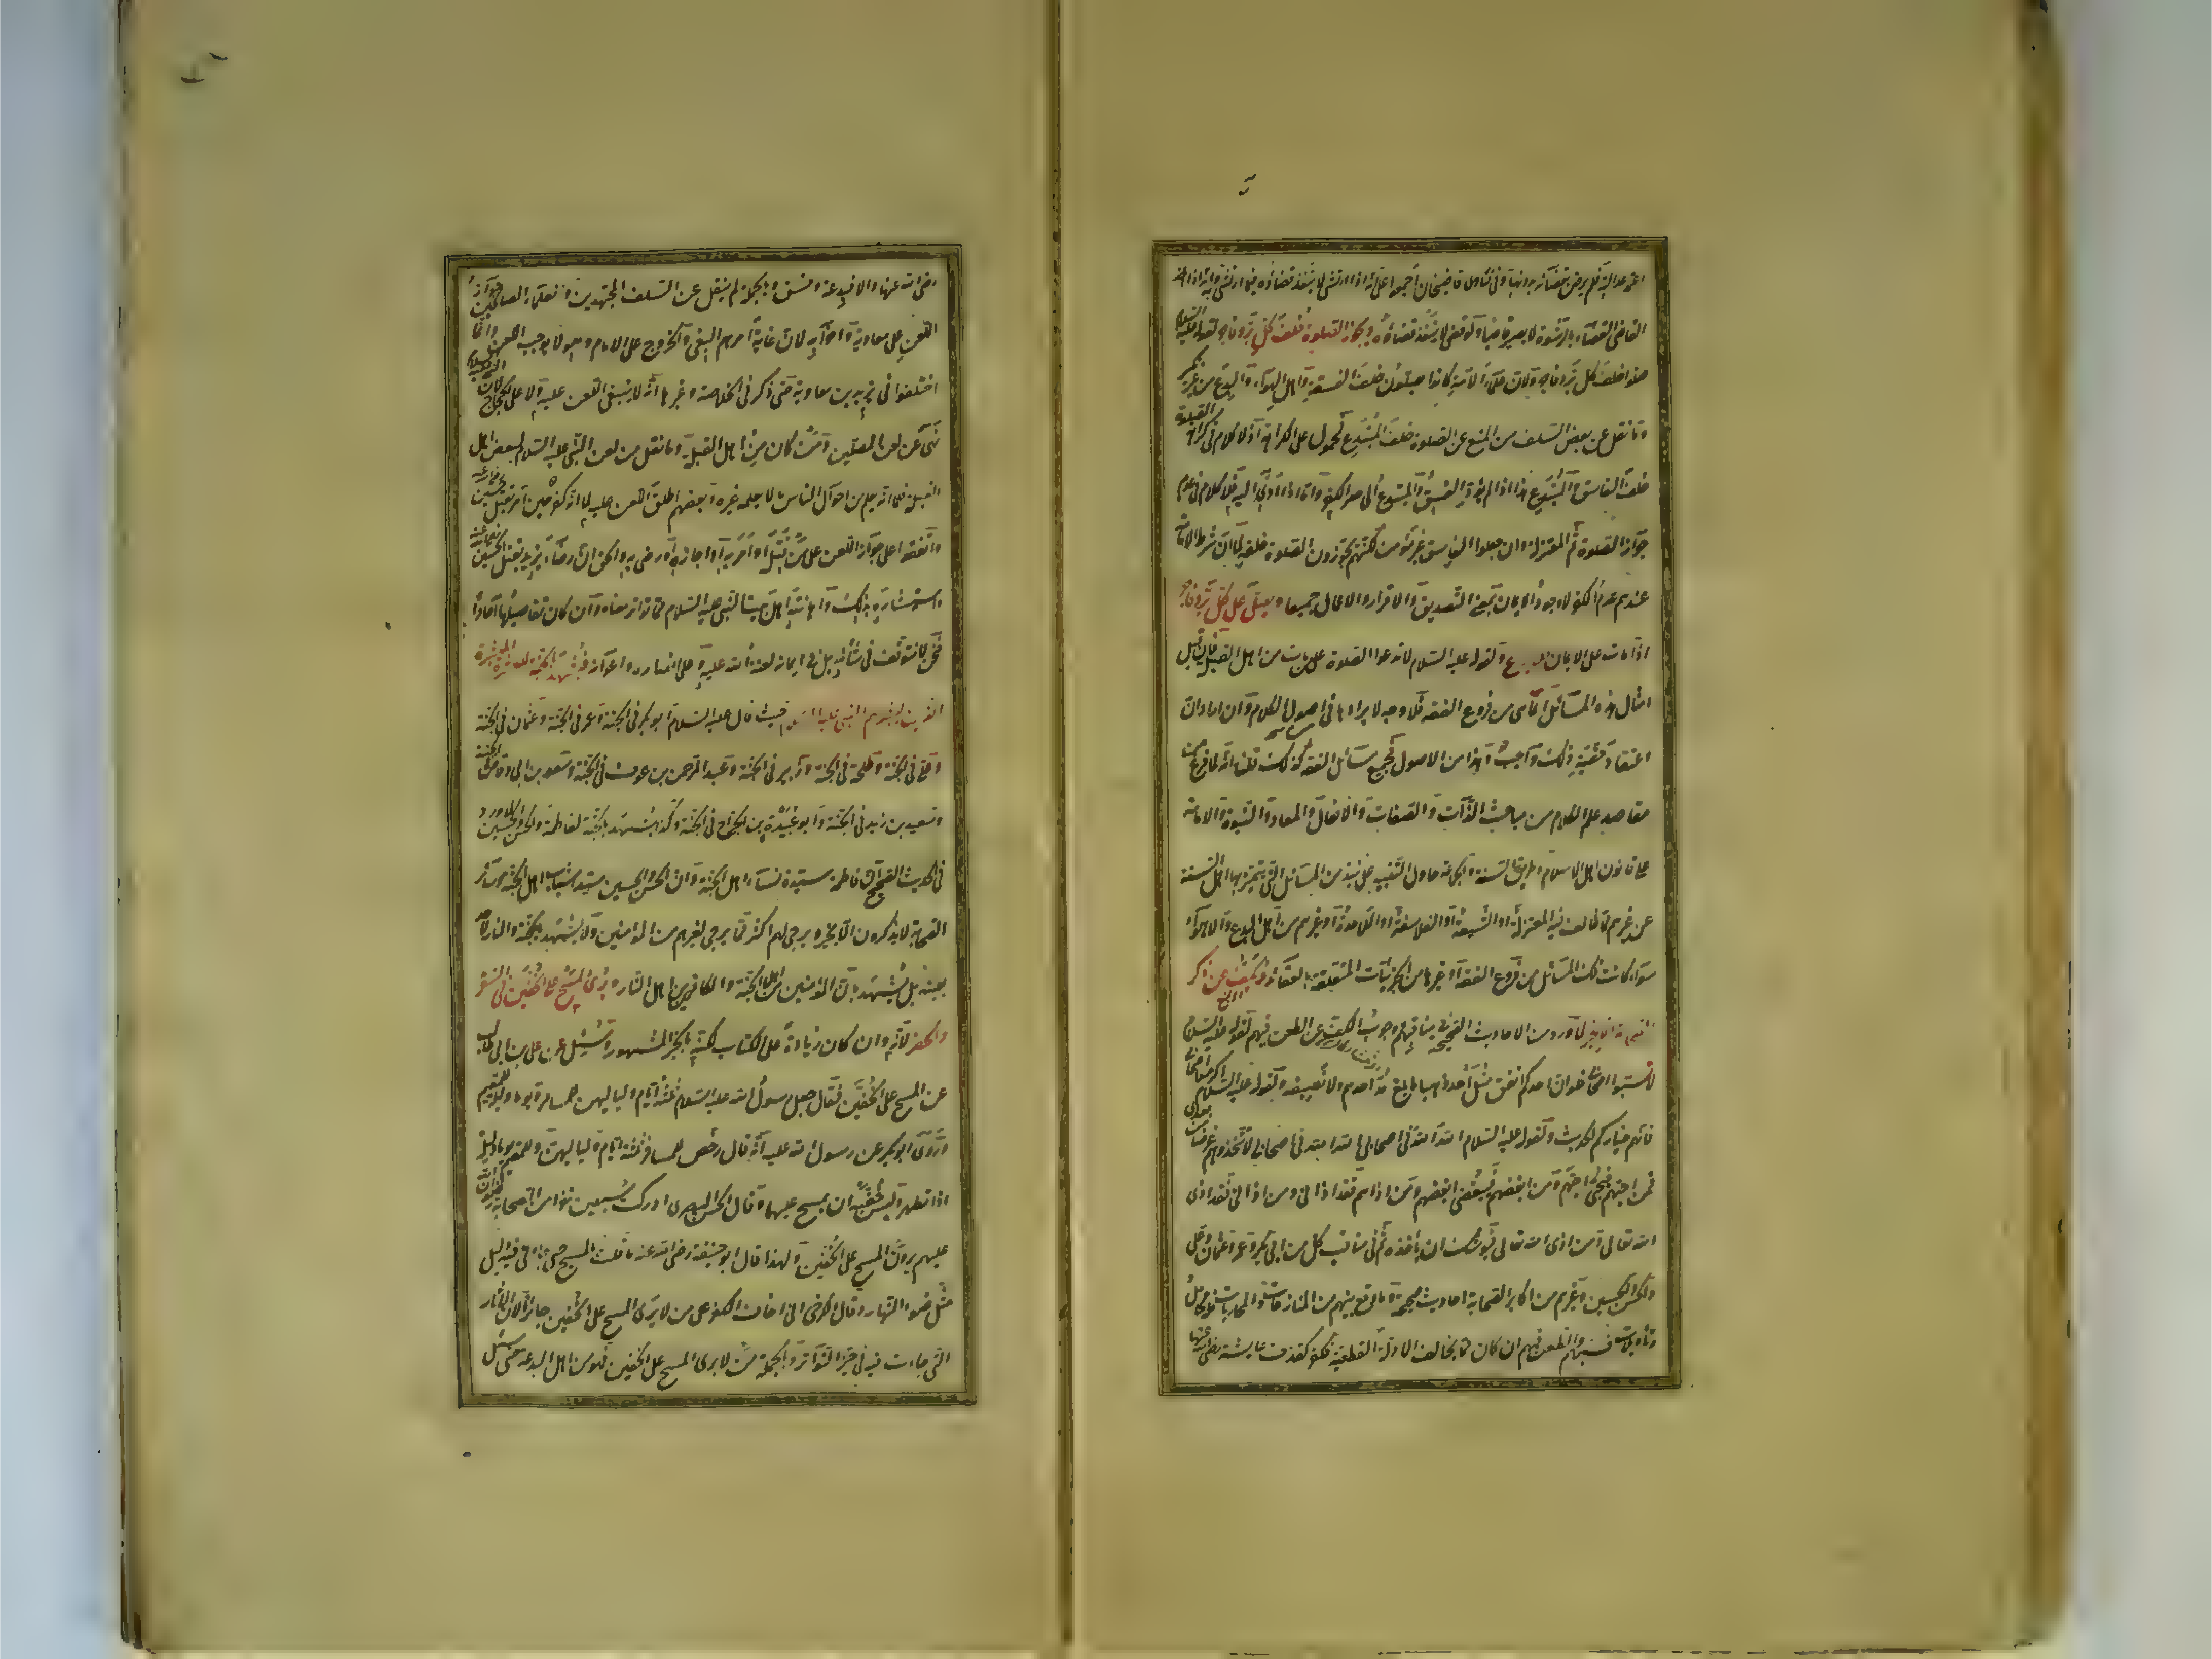 اعتمد عدالته فلم يرض بقضائه بدونها وفى فتاوى قاضيخان اجمعوا على انه اذا ارتشى لا ينفذ قضاؤه فيما ارتشى وانه اذا اخذ
القاضى القضاء بالرشوة لا يصير قاضيا ولو قضى لا ينفذ قضاؤه ويجوز الصلوة خلف كل بر وفاجر لقوله عليه السلام
صلوا خلف كل بر وفاجر ولان علماء الامة كانوا يصلون خلف الفسقة واهل الاهواء والبدع من غير نكير
وما نقل عن بعض السلف من المنع عن الصلوة خلف المبتدع فمحمول على الكراهة اذ لا كلام فى كراهة الصلوة
خلف الفاسق والمبتدع هذا اذا لم يؤد الفسق والبدعة الى حد الكفر واما اذا ادى اليه فلا كلام فى عدم
جواز الصلوة ثم المعتزلة وان جعلوا الفاسق غير مؤمن لكنهم يجوزون الصلوة خلفه لما ان شرط الامامة
عندهم عدم الكفر لا وجود الايمان بمعنى التصديق والاقرار والاعمال جميعا ويصلى على كل بر وفاجر
اذا مات على الايمان للاجماع ولقوله عليه السلام لا تدعوا الصلوة على من مات من اهل القبلة فان قيل
امثال هذه المسائل انما هى من فروع الفقه فلا وجه لايرادها فى اصول الكلام وان اراد ان
اعتقاد حقية ذلك واجب وهذا من الاصول فجميع مسائل الفقه كذلك قلنا انه لما فرغ من
مقاصد علم الكلام من مباحث الذات والصفات والافعال والمعاد والنبوة والامامة
على قانون اهل الاسلام وطريق السنة والجماعة حاول التنبيه على نبذ من المسائل التى يتميز بها اهل السنة
عن غيرهم مما خالف فيه المعتزلة او الشيعة او الفلاسفة او الملاحدة او غيرهم من اهل البدع والاهواء
سواء كانت تلك المسائل من فروع الفقه او غيرها من الجزئيات المتعلقة بالعقائد ويكف عن ذكر
الصحابة الا بخير لما ورد من الاحاديث الصحيحة فى مناقبهم ووجوب الكف عن الطعن فيهم لقوله عليه السلام
لا تسبوا اصحابى فلو ان احدكم انفق مثل احد ذهبا ما بلغ مد احدهم ولا نصيفه ولقوله عليه السلام اكرموا اصحابى
فانهم خياركم الحديث ولقوله عليه السلام الله الله فى اصحابى الله الله فى اصحابى لا تتخذوهم غرضا من بعدى
فمن احبهم فبحبى احبهم ومن ابغضهم فببغضى ابغضهم ومن اذاهم فقد اذانى ومن اذانى فقد اذى
الله تعالى ومن اذى الله تعالى فيوشك ان يأخذه ثم فى مناقب كل من ابى بكر وعمر وعثمان وعلى
والحسن والحسين وغيرهم من اكابر الصحابة احاديث صحيحة وما وقع بينهم من المنازعات والمحاربات فله محامل
وتأويلات فسبهم والطعن فيهم ان كان مما يخالف الادلة القطعية فكفر كقذف عايشة رضى الله عنها
رضى الله عنها والا فبدعة وفسق وبالجملة لم ينقل عن السلف المجتهدين والعلماء الصالحين جواز
اللعن على معاوية واحزابه لان غاية امرهم البغى والخروج على الامام وهو لا يوجب اللعن وانما
اختلفوا فى يزيد بن معاوية حتى ذكر فى الخلاصة وغيرها انه لا ينبغى اللعن عليه ولا على الحجاج لان النبى عليه السلام
نهى عن لعن المصلين ومن كان من اهل القبلة وما نقل من لعن النبى عليه السلام لبعض اهل
القبلة فلما انه يعلم من احوال الناس ما لا يعلمه غيره وبعضهم اطلق اللعن عليه لما انه كفر حين امر بقتل حسين رضى الله عنه
واتفقوا على جواز اللعن على من قتله او امر به او اجازه او رضى به والحق ان رضاء يزيد بقتل الحسين رضى الله عنه
واستبشاره بذلك واهانته اهل بيت النبى عليه السلام مما تواتر معناه وان كان تفاصيلها احادا
فنحن لا نتوقف فى شأنه بل فى ايمانه لعنة الله عليه وعلى انصاره واعوانه ونشهد بالجنة للعشرة المبشرة
الذين بشرهم النبى عليه السلام حيث قال عليه السلام ابو بكر فى الجنة وعمر فى الجنة وعثمان فى الجنة
وعلى فى الجنة وطلحة فى الجنة وزبير فى الجنة وعبد الرحمن بن عوف فى الجنة وسعد بن ابى وقاص فى الجنة
وسعيد بن زيد فى الجنة وابو عبيدة بن الجراح فى الجنة وكذا نشهد بالجنة لفاطمة والحسن والحسين لما ورد
فى الحديث الصحيح ان فاطمة سيدة نساء اهل الجنة وان الحسن والحسين سيدا شباب اهل الجنة وسائر
الصحابة لا يذكرون الا بخير ويرجى لهم اكثر مما يرجى لغيرهم من المؤمنين ولا يشهد بالجنة والنار لاحد
بعينه بل نشهد بان المؤمنين من اهل الجنة والكافرين من اهل النار ويرى المسح على الخفين فى السفر
والحضر لانه وان كان زيادة على الكتاب لكنه بالخبر المشهور وسئل عن على بن ابى طالب
عن المسح على الخفين فقال جعل رسول الله عليه السلام ثلثة ايام ولياليهن للمسافر ويوما وليلة للمقيم
وروى ابو بكر عن رسول الله عليه انه قال رخص للمسافر ثلثة ايام ولياليهن وللمقيم يوما وليلة
اذا تطهر ولبس خفيه ان يمسح عليهما وقال الحسن البصرى ادركت سبعين نفرا من الصحابة رضوان الله
عليهم يرون المسح على الخفين ولهذا قال ابو حنيفة رضى الله عنه ما قلت بالمسح حتى جاءنى فيه دليل
مثل ضوء النهار وقال الكرخى انى اخاف الكفر على من لا يرى المسح على الخفين جائزا لان الاثار
التى جاءت فيه فى حيز التواتر وبالجملة من لا يرى المسح على الخفين فهو من اهل البدعة حتى سئل